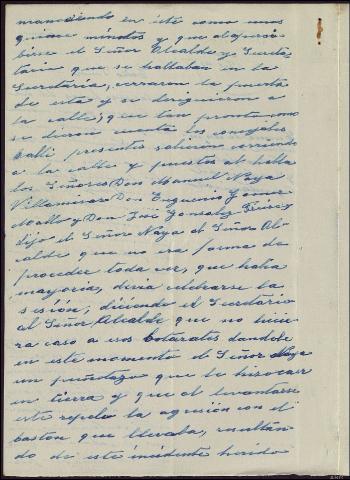 maneciendo en este como unos
quince minutos y que al apercibirse
el Señor Alcalde y Secretario
que se hallaban en la
Secretaría, cerraron la puerta
de esta y se dirigieron a
la calle; que tan pronto como
se dieron cuenta los concejales
alli presentes salieron corriendo
a la calle y puestos al habla
los Señores Don Manuel Naya
Villamisar Don Eugenio
Mallo y Don José Gonzalez
dijo el Señor Naya al Señor Alcalde
que no era forma de
proceder toda vez, que había
mayoría, debia celebrarse la
sesión; diciendo el Secretario
al Señor Alcalde que no hiciera
caso a esos botarates dandole
en este momento el Señor Naya
un puñetazo que le hizo caer
en tierra y que al levantarse
este repelio la agresión con el
baston que llevaba, resultando
de este incidente herido